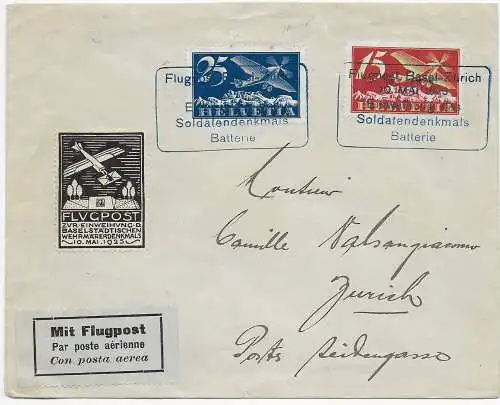 25
HELVETIA
15
HELVETIA
Flugpost Basel-Zürich
Soldatendenkmals
Batterie
Flugpost Basel-Zürich
10. MAI 1925
Soldatendenkmals
Batterie
FLVGPOST
ZVR·EINWEIHVNG·D·
BASELSTÄDTISCHEN
WEHRMÄNNERDENKMALS
10. MAI. 1925
Monsieur
Camille Valsangiacomo
Zürich
Poste Seidengasse
Mit Flugpost
Par poste aérienne
Con posta aerea